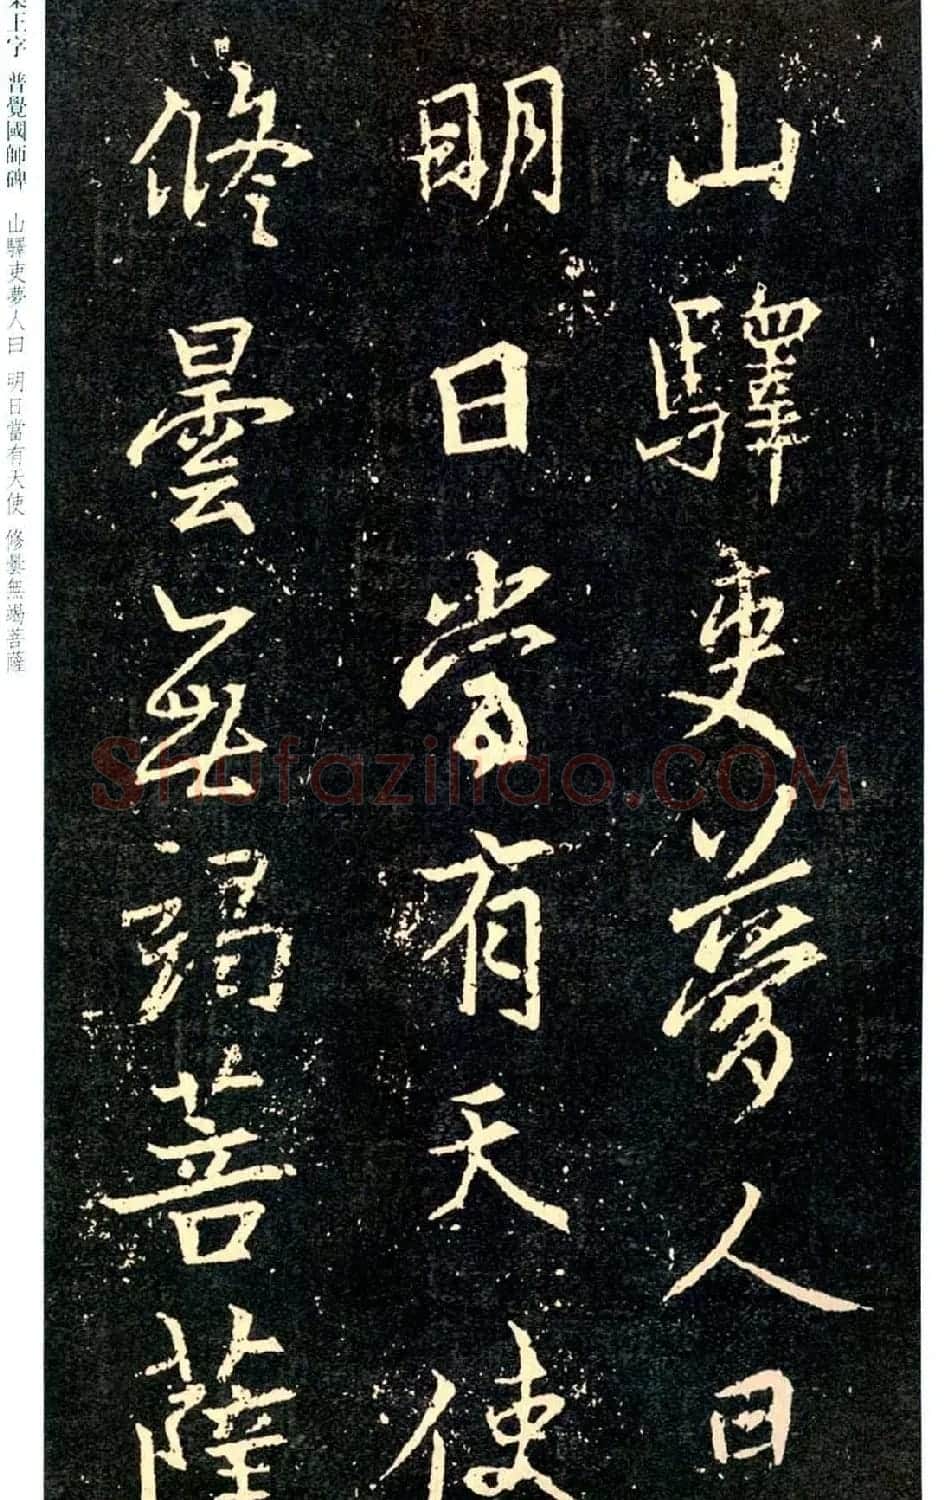 山驛吏夢人曰
明日當有天使
修曇無竭菩薩
集王字 普覺國師碑 山驛吏夢人曰 明日當有天使 修曇無竭菩薩
Shufaziliao.COM